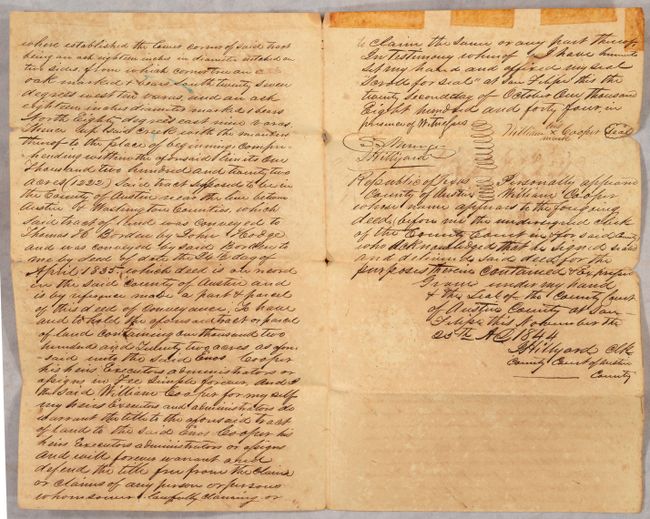 where established the lower corner of said tract
being an ash eighteen inches in diameter notched on
two sides, from which corner tree an
oak marked Bears South twenty seven
degrees west ten varas and an ash
eighteen inches diameter marked bears
North Eighty degrees east nine varas
Thence up said Creek with the meanders
thereof to the place of beginning Compre-
hending within the aforesaid limits One
Thousand two hundred and twenty two
acres (1222) Said tract suposed to be in
the County of Austin near the line between
Austin & Washington Counties, which
said tract of land was Conveyed to
Thomas H. Borden by Hodge
and was conveyed by said Borden to
me by deed of date the day of
April 1835, which deed is on record
in the said County of Austin and
is by referance made a part & parcel
of this deed of Conveyance, To have
and to hold the aforesaid tract or parcel
of land Containing One thousand two
hundred and Twenty two acres as afore-
said unto the said Enos Cooper
his heirs Executors administrators or
assigns in Fee Simple forever, And I
the said William Cooper for my self
my heirs Executors and administrators do
warrant the title to the aforesaid tract
of land to the said Enos Cooper his
heirs Executors administrators or assigns
and will forever warrant and
defend the title free from the Claim
or claims of any person or persons
whomsoever lawfully claiming or
to Claim the same or any part thereof
In testimony whereof I have hereunto
set my hand and affixed my seal
"Scroll for seal" at San Felipe this the
twenty Second day of October One thousand
Eight hundred and forty four in
presence of Witnesses
William his x mark Cooper Seal
J Hillyard
Republic of Texas Personally appeared
County of Austin William Cooper
whose name appears to the foregoing
deed, before me the undersigned clerk
of the County Court in & for said County
who acknowledged that he signed sealed
and delivered said deed for the
purposes therein contained & Expressed
Given under my hand
& the Seal of the County Court
of Austin County at San
Felipe this November the
25th AD 1844
J Hillyard Clk
County Court of Austin
County